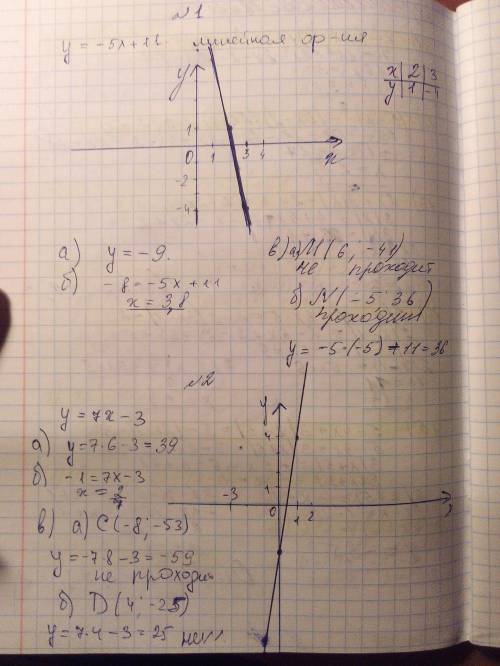 №1
y = -5x+11. линейная ф-ия
x | 2 | 3
y | 1 | -4
y
1
0 1 3 4 x
-2
-4
а) y = -9.
б) -8 = -5x+11
x = 3,8
в) а) M(6; -41)
не проходит
б) N(-5 36)
проходит
y = -5·(-5)+11=36
№2
y = 7x-3
а) y=7·6-3=39
б) -1=7x-3
x = 2/7
в) а) C(-8; -53)
y = -7·8-3=-59
не проходит
б) D(4; -25)
y=7·4-3=25 нет
y
4
1
-3 0 1 2